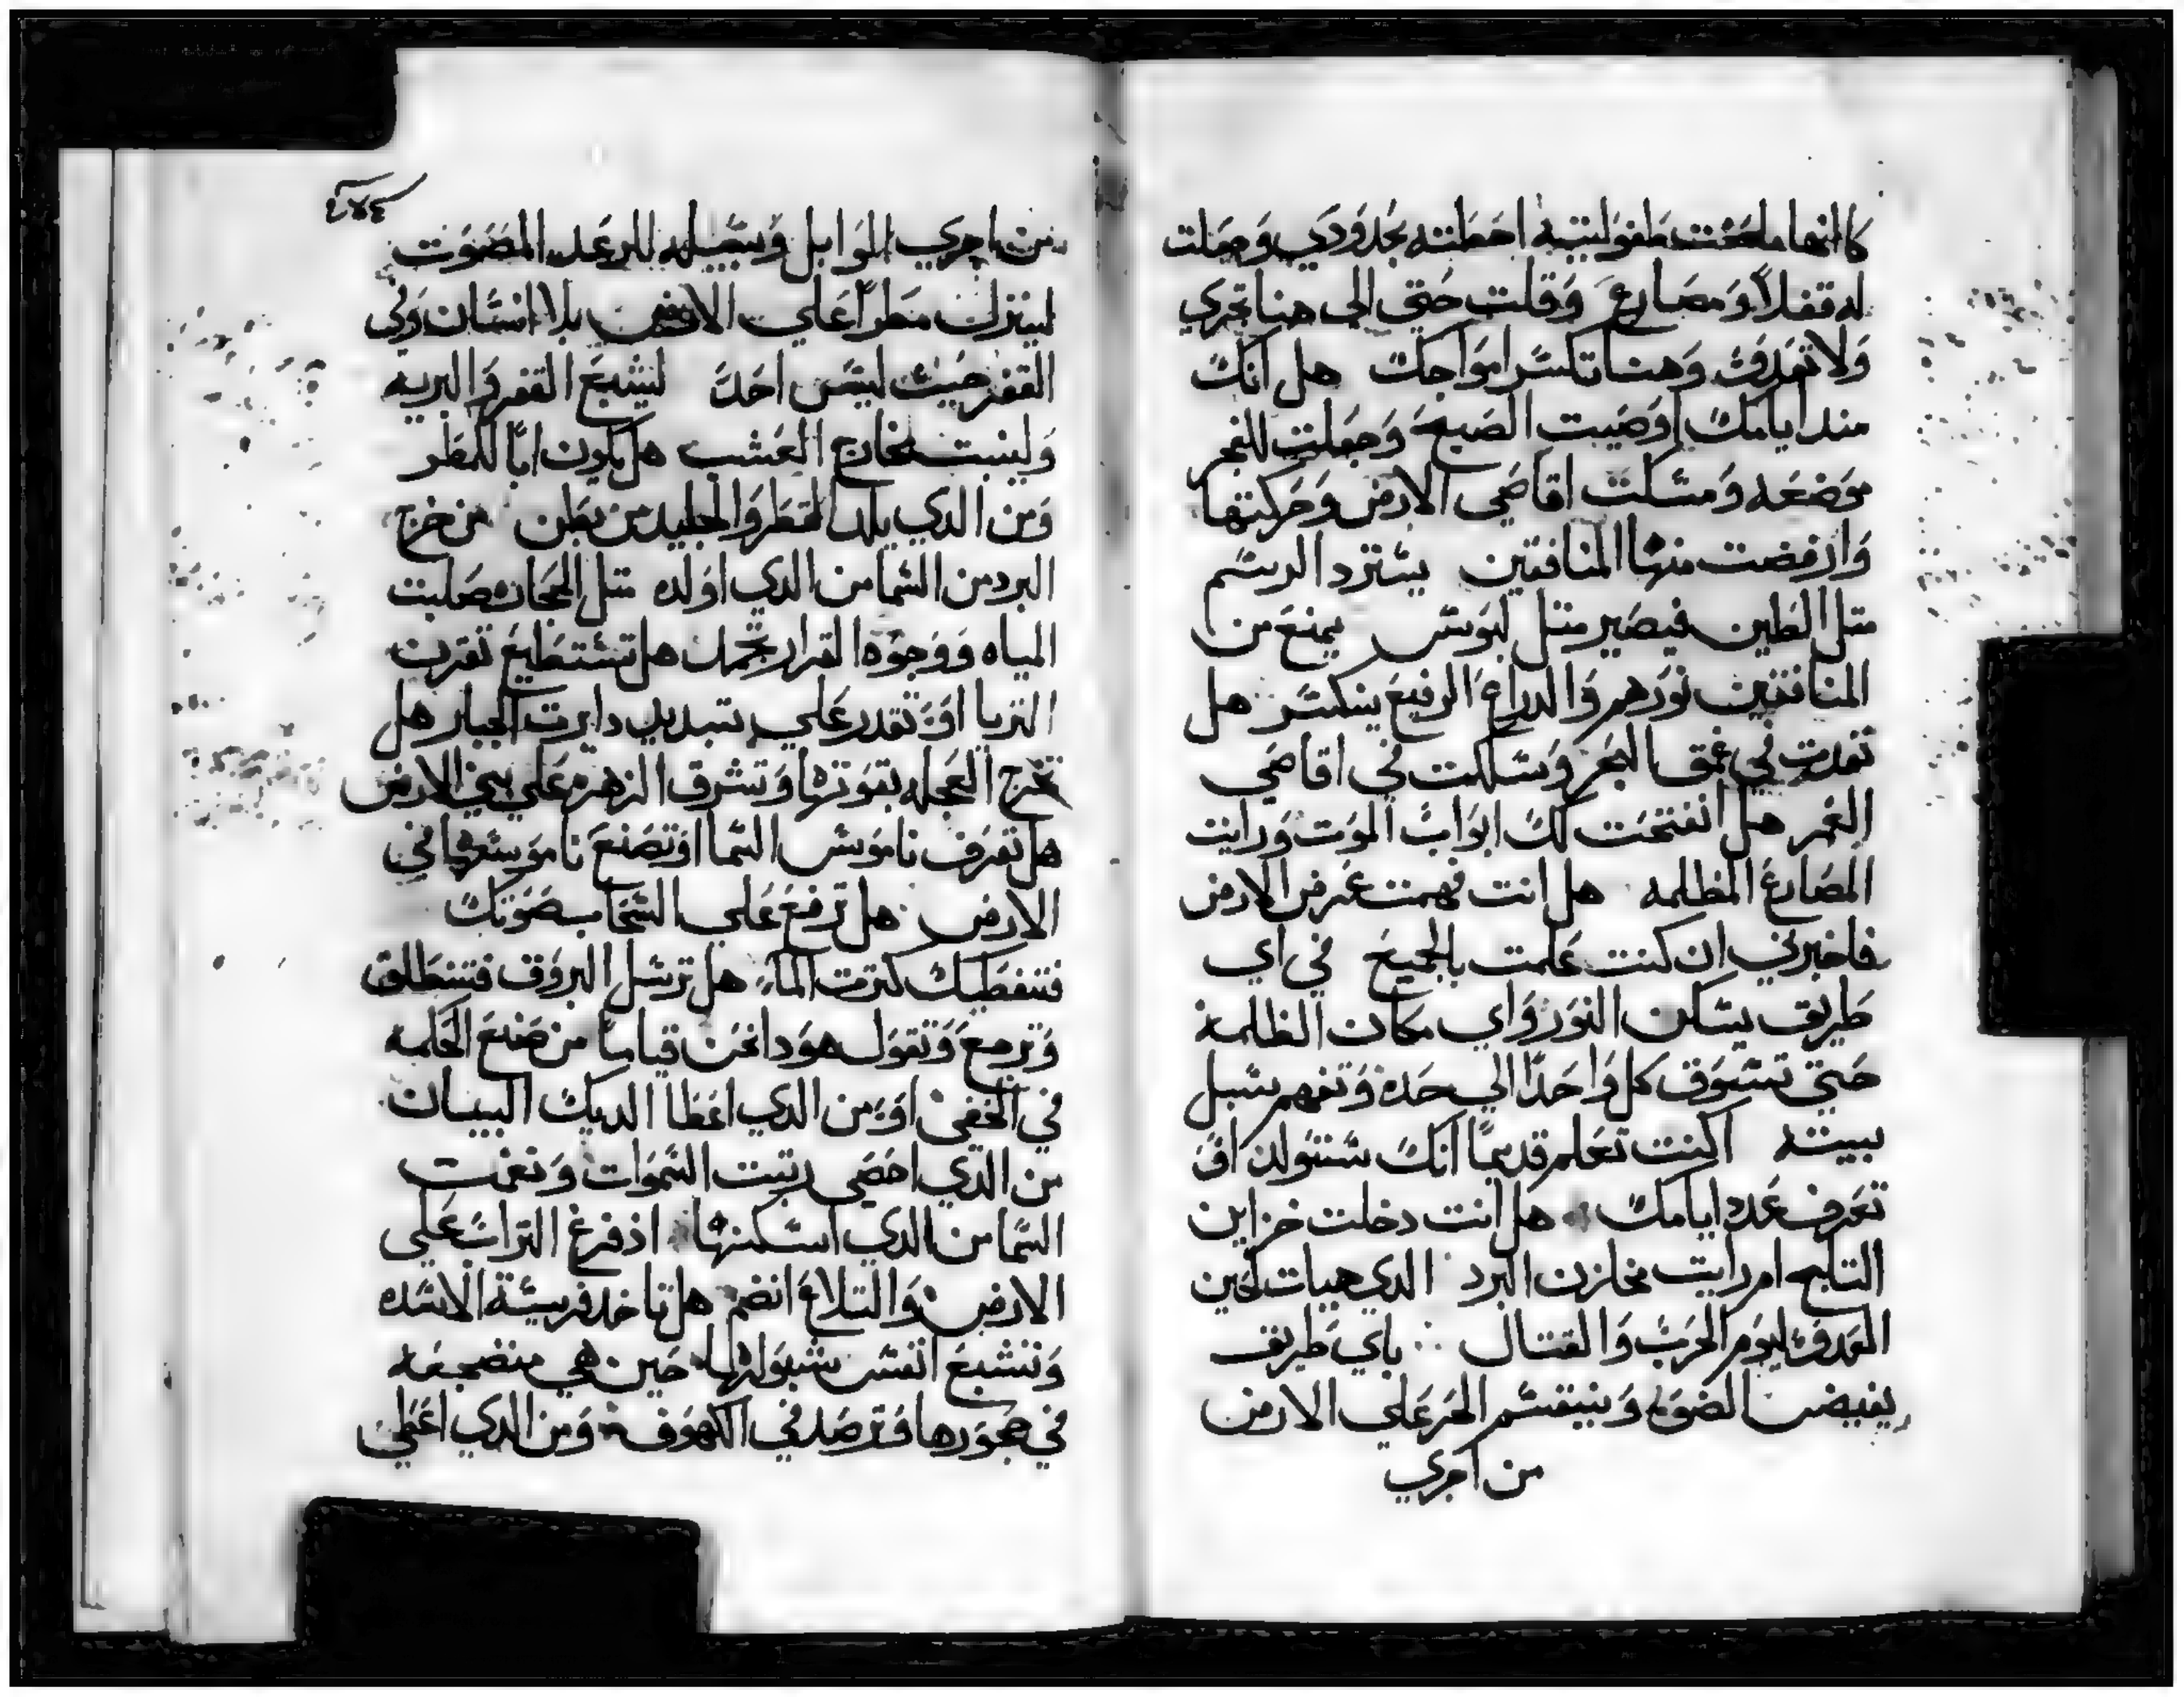 كانها ملحفت طفوليتة احطته بحدودي وجعلت
له قفلاً ومصارع وقلت حتى الى هنا تجري
ولا تعدوَ وهنا تكسر امواجك هل انك
مند ايامك اوصيت الصبح وجعلت للفجر
موضعه ومسكت اقاصي الارض وحركتها
وارفضت منها المنافقين يسترد الرسم
متل الطين فيصير متل لبوس يمنع من
المنافقين نورهم والدراع الرفيع ينكسر هل
تعديت في عمق البحر وسلكت في اقاصي
الغمر هل انفتحت لك ابواب الموت ورايت
المصارع المظلمه هل انت فهمت عرض الارض
فاخبرني ان كنت علمت بالجميع في اي
طريق يسكن النور واي مكان الظلمة
حتى تسوق كل واحدًا الى حده وتفهم سبل
بيته اكنت تعلم قديمًا انك ستولد او
تعرف عدد ايامك هل انت دخلت خزاين
التلج ام رايت مخازن البرد الدي هيات لحين
العدو ليوم الحرب والقتال باي طريق
يفيض الضو وينقسم الحر على الارض
من اجري
من اجري الوابل وسبيله للرعد المصوت
لينزل مطرًا على الارض بلا انسان وفي
القفر حيث ليس احدً ليشبع القفر والبريه
ولينبت مخارج العشب هل يكون ابًا للمطر
ومن الدي يلد القطر والجليد من بطن من خرج
البرد من السما من الدي اولده متل الحجاره صلبت
المياه ووجوه القرار تجمد هل تستطيع تقرن
التريا او تقدر على تبديل دايرت الجبار هل
تخرج العجله بقوتها وتشرق الزهره على بني الارض
هل تعرف ناموس السما او تصنع ناموسها في
الارض هل ترفع على السحاب صوتك
فتغطيك كترت الماء هل ترسل البروق فتنطلق
وترجع وتقول هودا نحن قيامًا من صنع الحكمه
في الخفي او من الدي اعطا الديك البيان
من الدي احصى رتبت السموات ونغمت
السما من الدي اسكنها اذ فرغ التراب على
الارض والتلاع انضم هل تاخد فريسة الاسده
وتشبع انفس شبولها حين هي منضجعه
في حجورها وترصد في الكهوف ومن الدي اعطى